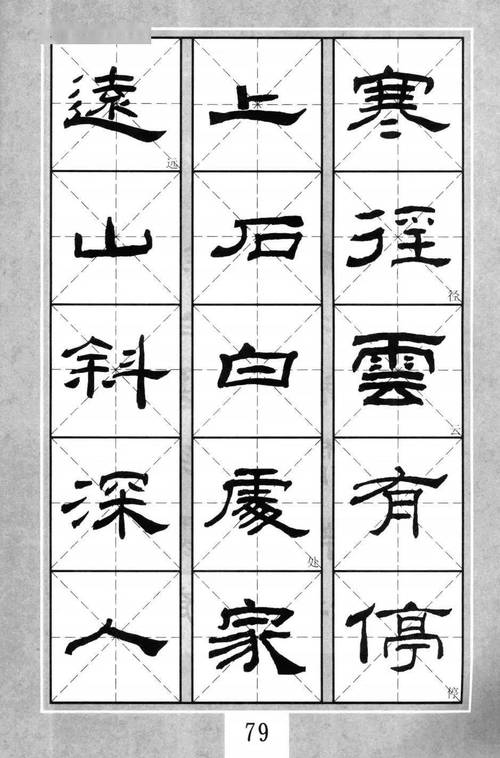 遠上寒
远
山石徑
径
斜白雲
云
深處有
处
人家停
停
79